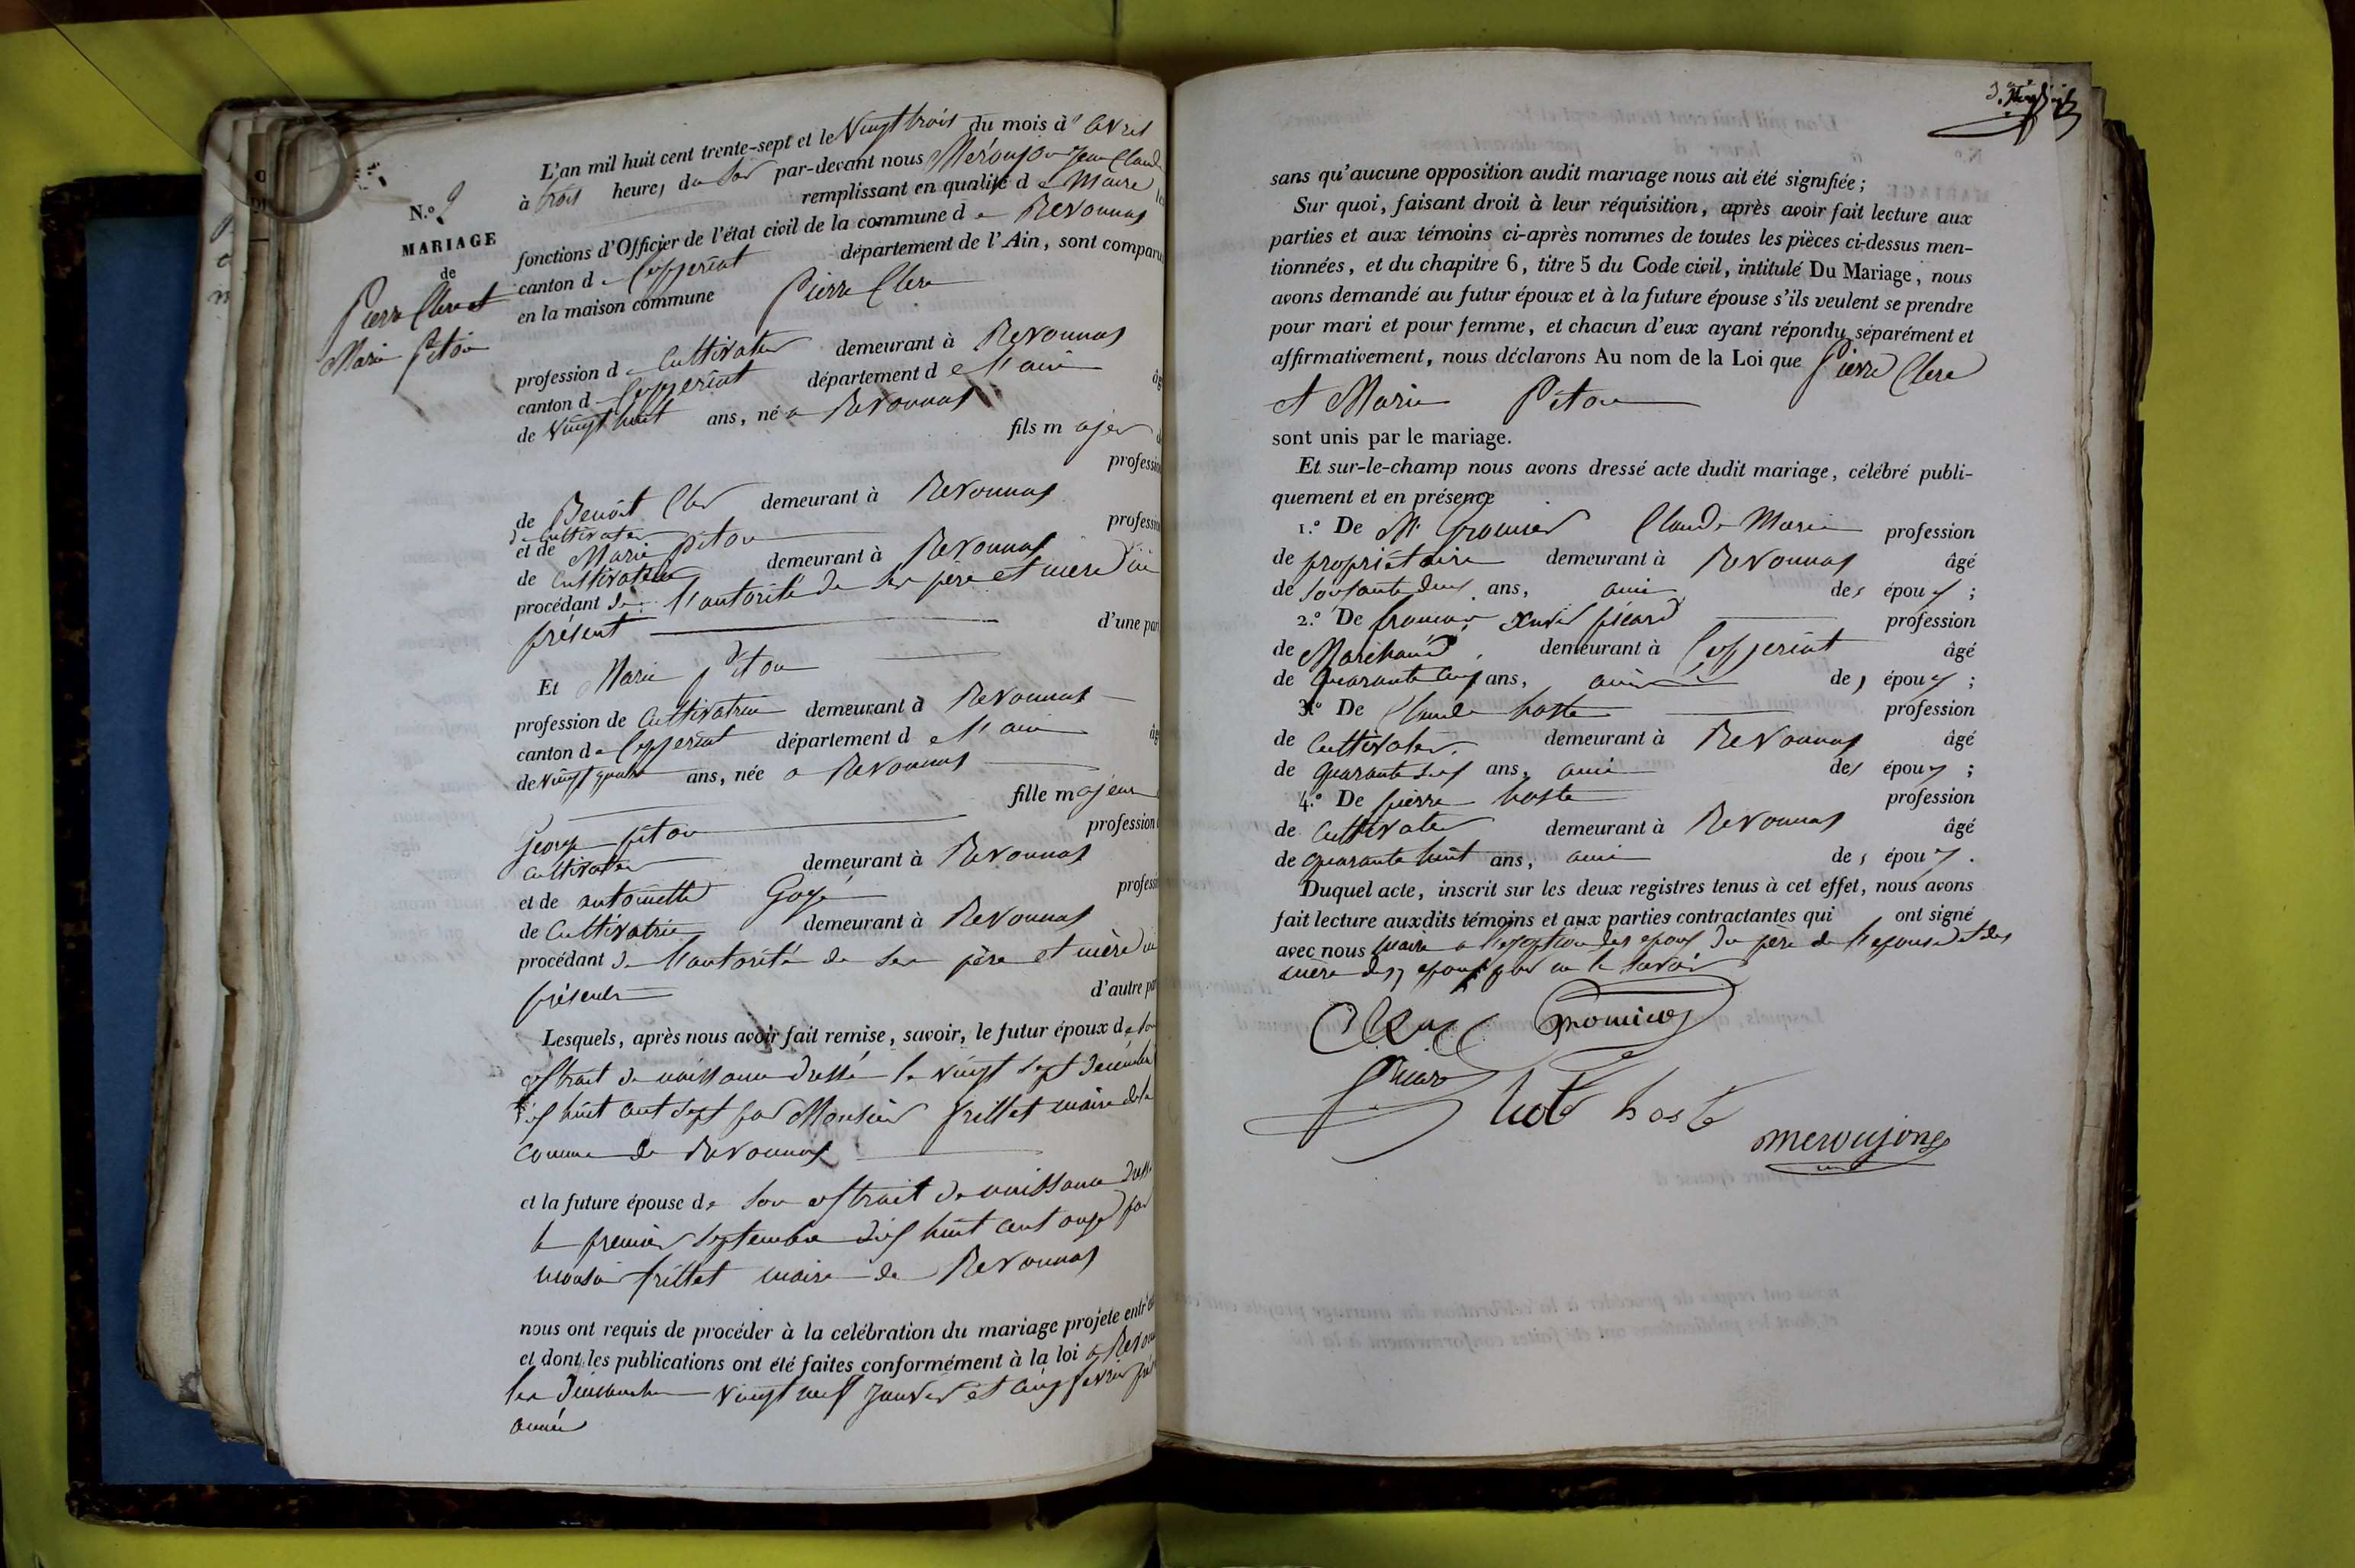 N.o 9
MARIAGE
de
Pierre Clere et
Marie Piton
L'an mil huit cent trente-sept et le Vingt trois du mois d' avril
à trois heures du soir par-devant nous Méroujon Jean Claude
remplissant en qualité de Maire les
fonctions d'Officier de l'état civil de la commune de Revonnas
canton de Ceyzeriat département de l'Ain, sont comparus
en la maison commune Pierre Clere
profession de Cultivateur demeurant à Revonnas
canton de Ceyzeriat département de l'ain âg
de Vingt huit ans, né a Revonnas
fils majeur d
profession
de Benoit Cler demeurant à Revonnas
de Cultivateur
et de Marie Piton profession
de Cultivatrice demeurant à Revonnas
procédant de l'autorité de ses père et mère ici
présent d'une part
Et Marie Piton
profession de Cultivatrice demeurant à Revonnas
canton de Ceyzeriat département de l'ain âg
de vingt quatre ans, née a Revonnas
fille majeure
George Piton profession
Cultivateur demeurant à Revonnas
et de antoinette Goyé profession
de Cultivatrice demeurant à Revonnas
procédant de l'autorité de ses père et mère ici
présents d'autre part
Lesquels, après nous avoir fait remise, savoir, le futur époux de son
extrait de naissance dressé le vingt sept décembre
dix huit cent sept par Monsieur frillet maire de la
commune de Revonnas
et la future épouse de son extrait de naissance dressé
le premier septembre dix huit cent onze par
monsieur frillet maire de Revonnas
nous ont requis de procéder à la celébration du mariage projeté entr'eux
et dont les publications ont été faites conformément à la loi a Revonnas
les dimanches vingt neuf janvier et cinq fevrier
année
sans qu'aucune opposition audit mariage nous ait été signifiée ;
Sur quoi, faisant droit à leur réquisition, après avoir fait lecture aux
parties et aux témoins ci-après nommes de toutes les pièces ci-dessus men-
tionnées, et du chapitre 6, titre 5 du Code civil, intitulé Du Mariage, nous
avons demandé au futur époux et à la future épouse s'ils veulent se prendre
pour mari et pour femme, et chacun d'eux ayant répondu séparément et
affirmativement, nous déclarons Au nom de la Loi que Pierre Clere
et Marie Piton
sont unis par le mariage.
Et sur-le-champ nous avons dressé acte dudit mariage, célébré publi-
quement et en présence
1.o De Mr gromier Claude Marie profession
de propriétaire demeurant à Revonnas âgé
de soixante deux ans, ami des époux ;
2.o De françois Xavier picard profession
de Marchand demeurant à Ceyzeriat âgé
de quarante cinq ans, ami des époux ;
3.o De Claude hoste profession
de Cultivateur demeurant à Revonnas âgé
de quarante six ans, ami des époux ;
4.o De pierre hoste profession
de Cultivateur demeurant à Revonnas âgé
de quarante huit ans, ami des époux .
Duquel acte, inscrit sur les deux registres tenus à cet effet, nous avons
fait lecture auxdits témoins et aux parties contractantes qui ont signé
avec nous maire a l'exception des epoux du père de l'epouse et des
mère des epoux pour ne le savoir
Gromier
hote hoste
meroujong